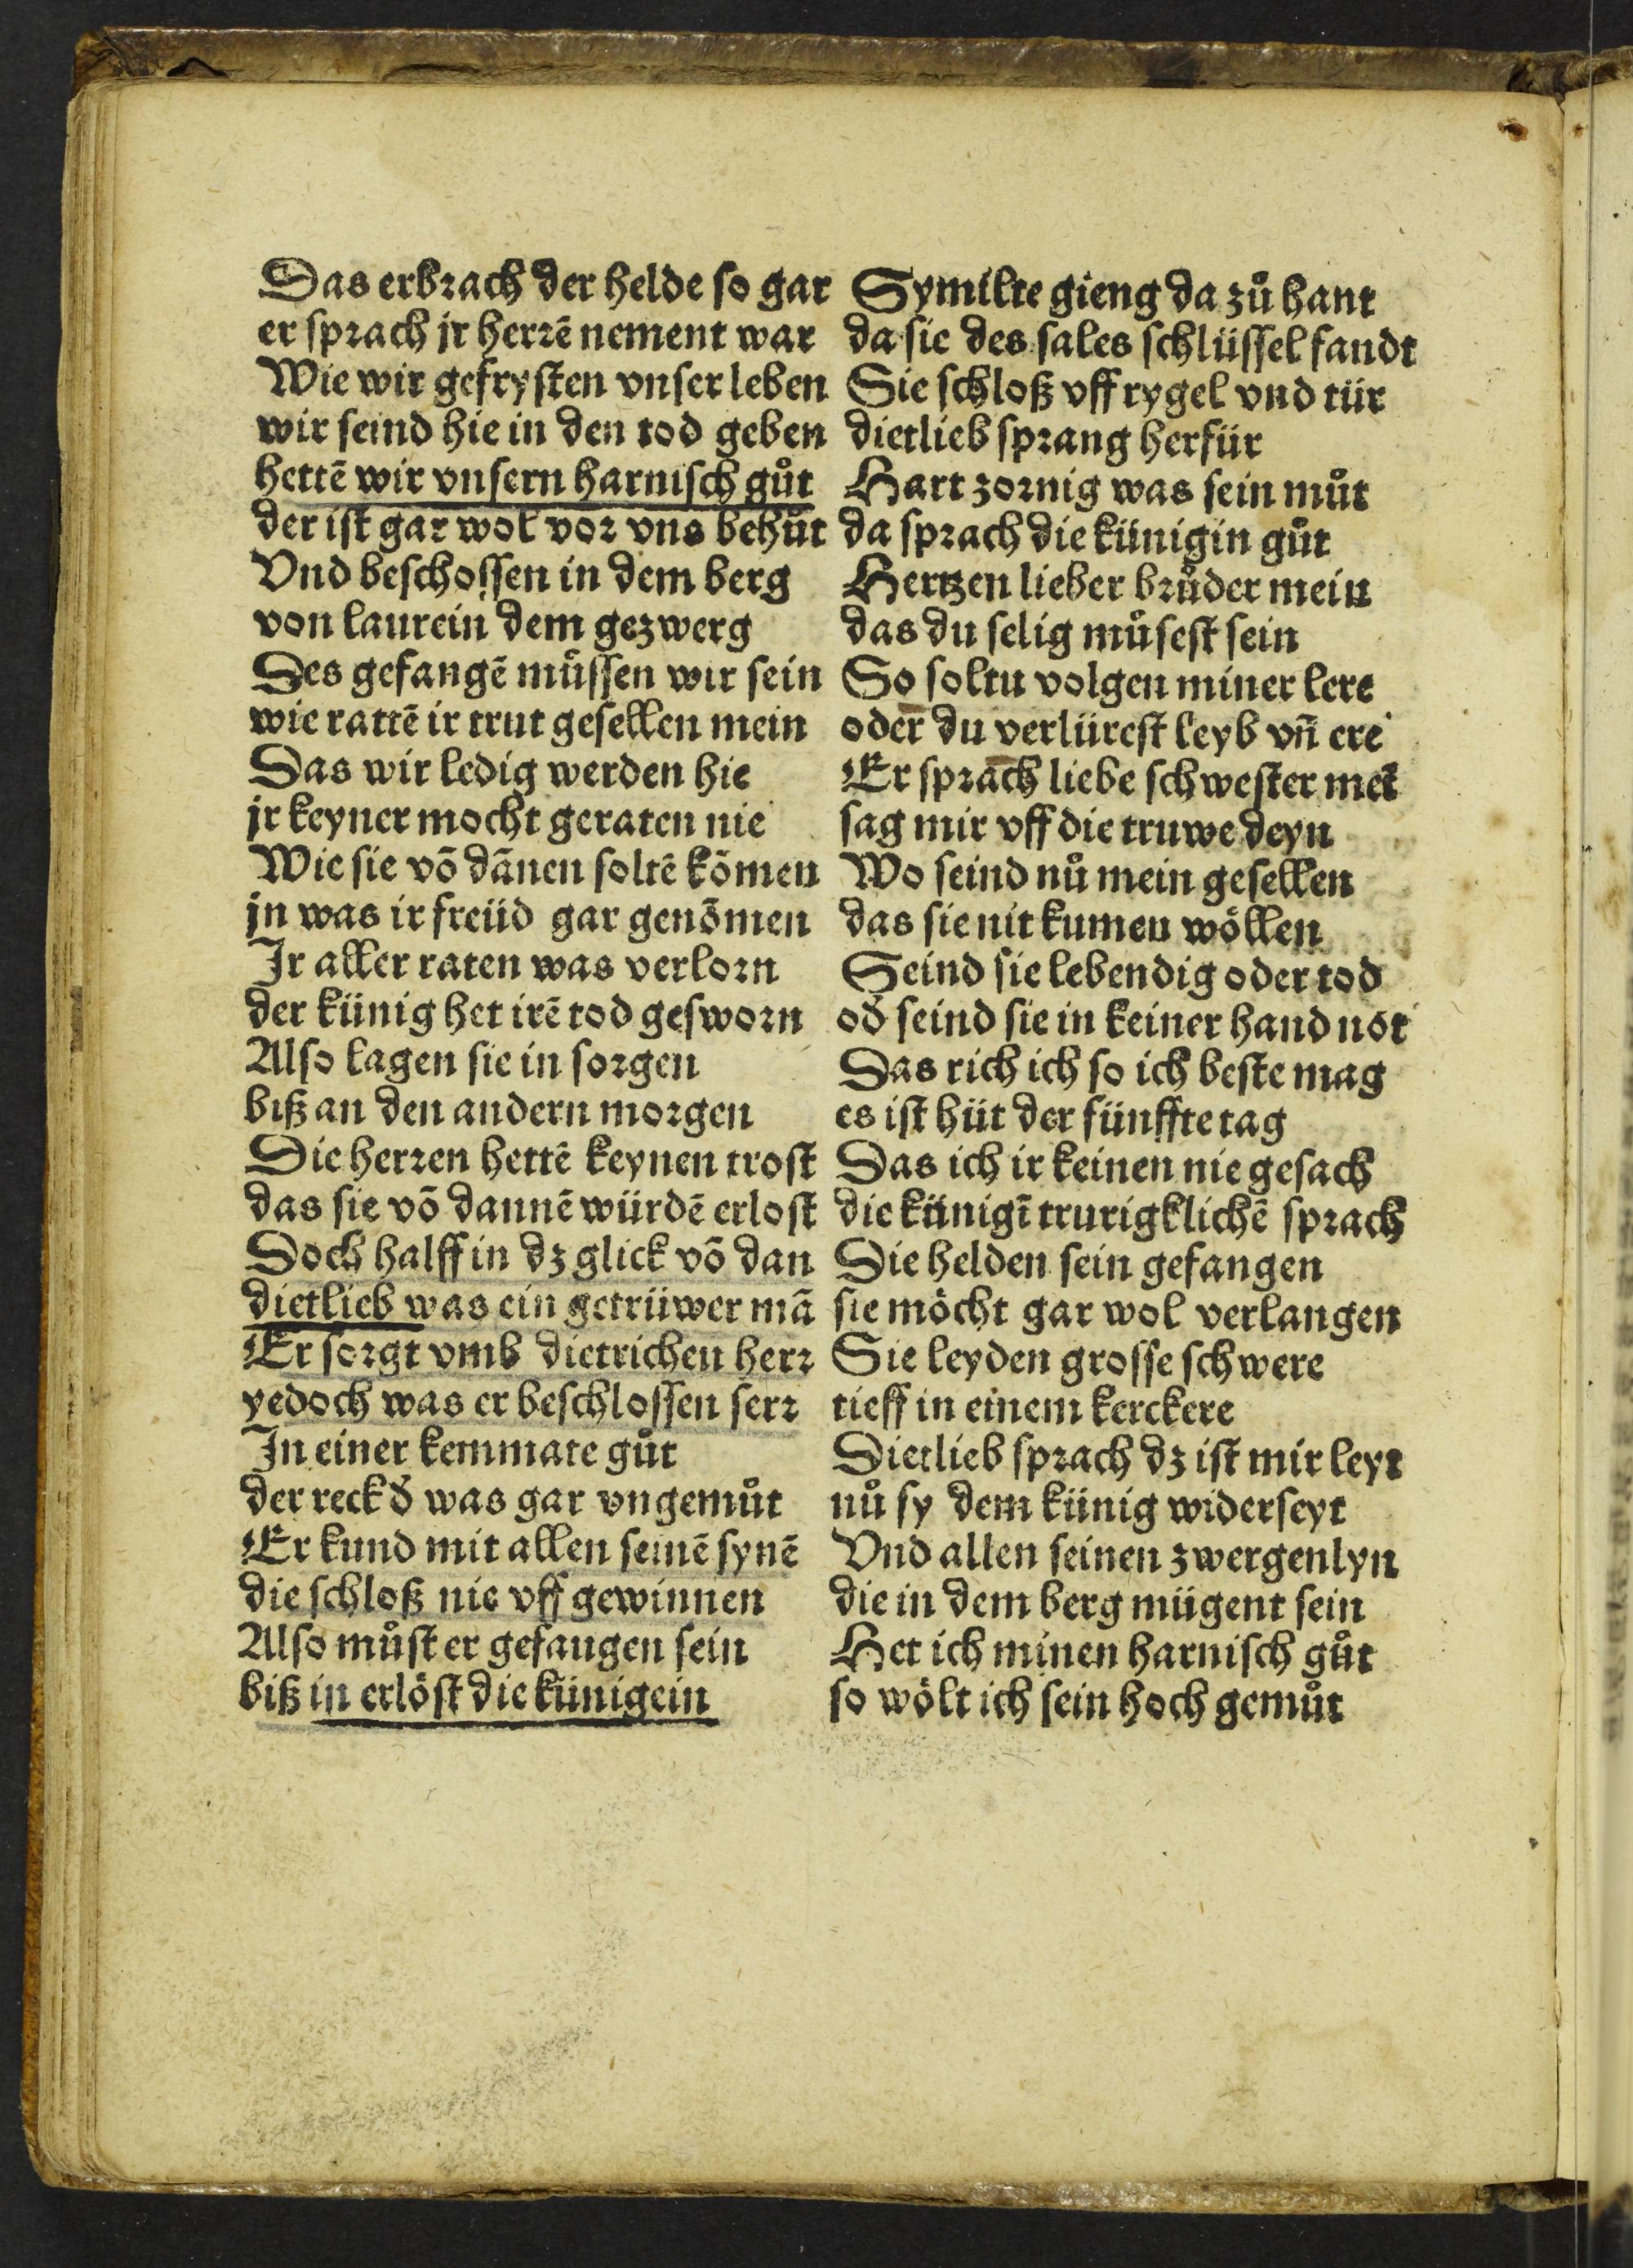 Das erbrach der helde so gar
er sprach jr herrē nement war
Wie wir gefrysten vnser leben
wir seind hie in den tod geben
hettē wir vnsern harnisch gůt
der ist gar wol vor vns behůt
Vnd beschossen in dem berg
von laurein dem gezwerg
Des gefangē müssen wir sein
wie rattē ir trut gesellen mein
Das wir ledig werden hie
jr keyner mocht geraten nie
Wie sie vō dānen soltē kōmen
jn was ir freüd gar genōmen
Ir aller raten was verlorn
der künig het irē tod gesworn
Also lagen sie in sorgen
biß an den andern morgen
Die herren hettē keynen trost
das sie vō dannē würdē erlost
Doch halff in dz glick vō dan
dietlieb was ein getrüwer mā
Er sorgt vmb dietrichen herr
yedoch was er beschlossen serr
In einer kemmate gůt
der reck d̄ was gar vngemůt
Er kund mit allen seinē synē
die schloß nie vff gewinnen
Also můst er gefangen sein
biß in erlöst die künigein
Symilte gieng da zů hant
da sie des sales schlüssel fandt
Sie schloß vff rygel vnd tür
dietlieb sprang herfür
Hart zornig was sein můt
da sprach die künigin gůt
Hertzen lieber brůder mein
das du selig můsest sein
So soltu volgen miner lere
oder du verlürest leyb vn̄ ere
Er sprach liebe schwester meī
sag mir vff die truwe deyn
Wo seind nů mein gesellen
das sie nit kumen wöllen
Seind sie lebendig oder tod
od̄ seind sie in keiner hand not
Das rich ich so ich beste mag
es ist hüt der fünffte tag
Das ich ir keinen nie gesach
die künigī trurigklichē sprach
Die helden sein gefangen
sie möcht gar wol verlangen
Sie leyden grosse schwere
tieff in einem kerckere
Dietlieb sprach dz ist mir leyt
nů sy dem künig widerseyt
Vnd allen seinen zwergenlyn
die in dem berg mügent sein
Het ich minen harnisch gůt
so wölt ich sein hoch gemůt